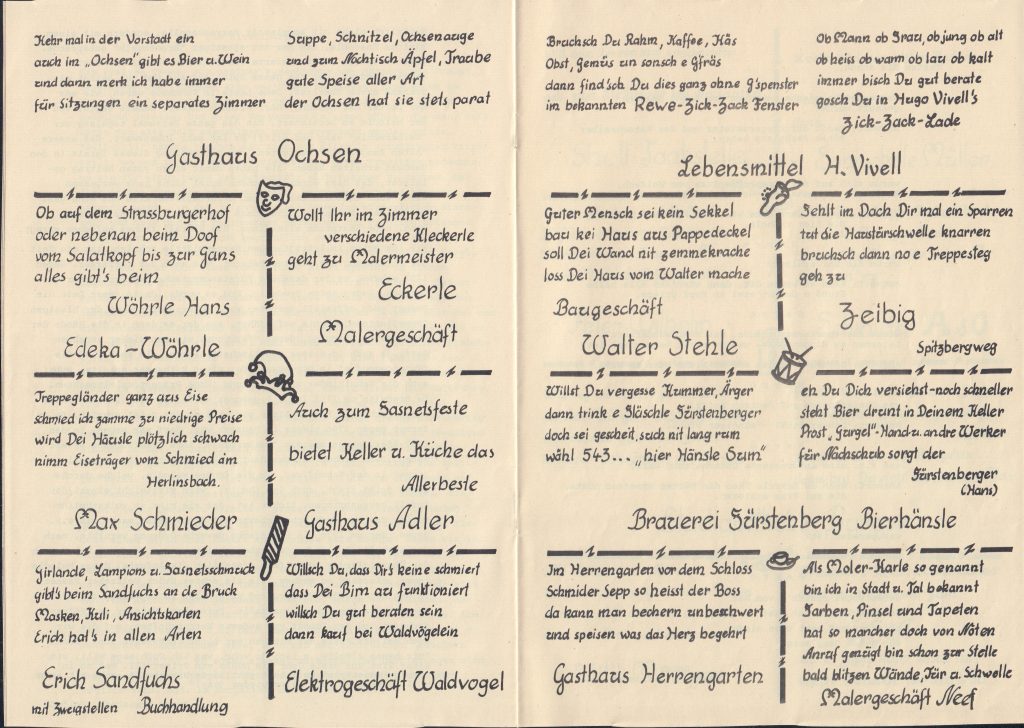 Kehr mal in der Vorstadt ein
auch im „Ochsen" gibt es Bier u. Wein
und dann merk ich habe immer
für Sitzungen ein separates Zimmer
Suppe, Schnitzel, Ochsenauge
und zum Nachtisch Äpfel, Traube
gute Speise aller Art
der Ochsen hat sie stets parat
Gasthaus Ochsen
Ob auf dem Strassburgerhof
oder nebenan beim Doof
vom Salatkopf bis zur Gans
alles gibt's beim
Wöhrle Hans
Edeka-Wöhrle
Wollt Ihr im Zimmer
verschiedene Kleckerle
geht zu Malermeister
Eckerle
Malergeschäft
Treppegländer ganz aus Eise
schmied ich zamme zu niedrige Preise
wird Dei Häusle plötzlich schwach
nimm Eiseträger vom Schmied am
Herlinsbach.
Max Schmieder
Auch zum Fasnetsfeste
bietet Keller u. Küche das
Allerbeste
Gasthaus Adler
Girlande, Lampions u. Fasnetsschmuck
gibt's beim Sandfuchs an de Bruck
Masken, Kuli, Ansichtskarten
Erich hat's in allen Arten
Erich Sandfuchs
mit Zweigstellen Buchhandlung
Willsch Du, dass Dir's keine schmiert
dass Dei Birn au funktioniert
willsch Du gut beraten sein
dann kauf bei Waldvögelein
Elektrogeschäft Waldvogel
Bruchsch Du Rahm, Kaffee, Käs
Obst, Gemüs un sonsch e Gfräs
dann find'sch Du dies ganz ohne G'spenster
im bekannten Rewe-Zick-Zack Fenster
Ob Mann ob Frau, ob jung ob alt
ob heiss ob warm ob lau ob kalt
immer bisch Du gut berate
gosch Du in Hugo Vivell's
Zick-Zack-Lade
Lebensmittel H. Vivell
Guter Mensch sei kein Sekkel
bau kei Haus aus Pappedeckel
soll Dei Wand nit zemmekrache
loss Dei Haus vom Walter mache
Baugeschäft
Walter Stehle
Fehlt im Dach Dir mal ein Sparren
tut die Haustürschwelle knarren
bruchsch dann no e Treppesteg
geh zu
Zeibig
Spitzbergweg
Willst Du vergesse Kummer, Ärger
dann trink e Fläschle Fürstenberger
doch sei gescheit, such nit lang rum
wähl 543... „hier Hänsle Sum"
eh Du Dich versiehst-noch schneller
steht Bier drunt in Deinem Keller
Prost „Gurgel"-Hand u. andre Werker
für Nachschub sorgt der
Fürstenberger
(Hans)
Brauerei Fürstenberg Bierhänsle
Im Herrengarten vor dem Schloss
Schmider Sepp so heisst der Boss
da kann man bechern unbeschwert
und speisen was das Herz begehrt
Gasthaus Herrengarten
Als Moler-Karle so genannt
bin ich in Stadt u. Tal bekannt
Farben, Pinsel und Tapeten
hat so mancher doch von Nöten
Anruf genügt bin schon zur Stelle
bald blitzen Wände, Tür u. Schwelle
Malergeschäft Neef